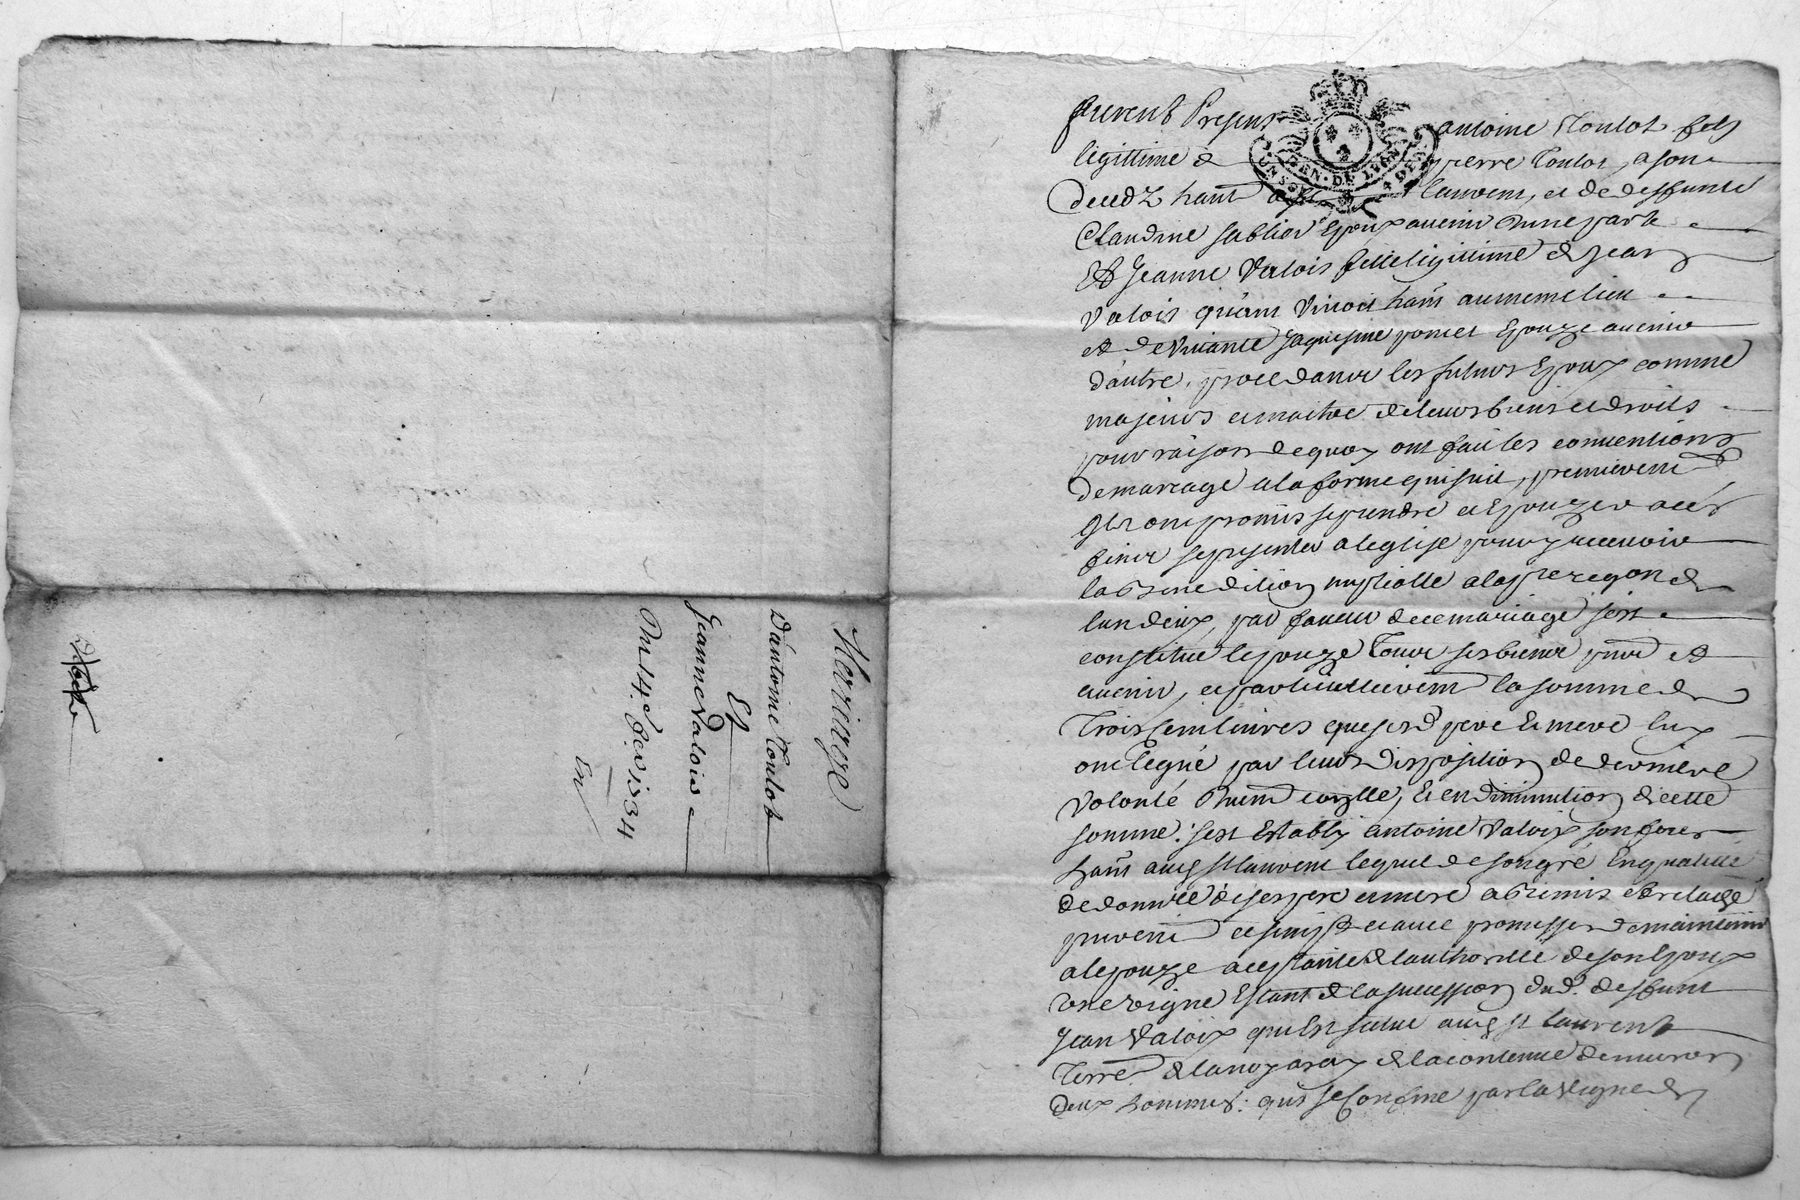 Mariage
D'antoine Toulot
Et
Jeanne Valois
Du 14e fev 1734
furent Presens antoine Toulot fils
légittime de pierre Toulot, a son
decedz hant a St laurent, et de deffunte
Claudine sablior Epoux avenir d'une part
Et Jeanne Valois fille légitime de Jean
Valois quant vivoit hant au meme lieu
et de vivante Jaquesme ponet Epouze avenir
d'autre, procedants les futurs Epoux comme
majeurs et maitre de leurs biens et droits
pour raison de quoy ont fait les conventions
de mariage a la forme qui suit, premierent
Ils ont promis se prendre et Epouzer a ces
fins se presenter a l'eglise pour y recevoir
la Benediction nuptialle a la pre reqon de
l'un deux, par faveur de ce mariage sest
constitué lepouze Tous ses biens pnts et
avenir, et particullierement la somme de
Trois Cent livres que sesd pere et mere luy
ont legué par leurs disposition de derniere
volonté et en diminution de cette
somme : sest Estably antoine Valoix son frere
hant aud St laurent lequel de son gré En qualité
de donn're de ses pere et mere a Remis et Relaché
avec promesse de maintenir
a lepouze aceptante de lauthorité de son Epoux
une vigne Estant de la succession dud. deffunt
Jean Valoix qui Est situé aud St laurent
Terre de la noyaray de la contenue denviron
deux hommés : qui se Confine par la vigne de